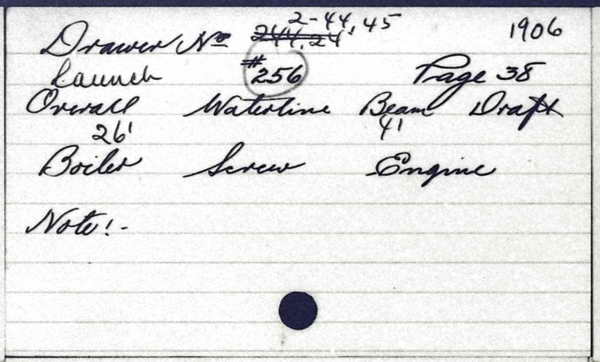 2-44, 45
Drawer No 244.24 1906
Launch #256 Page 38
Overall Waterline Beam Draft
26' 4'
Boiler Screw Engine
Note!-